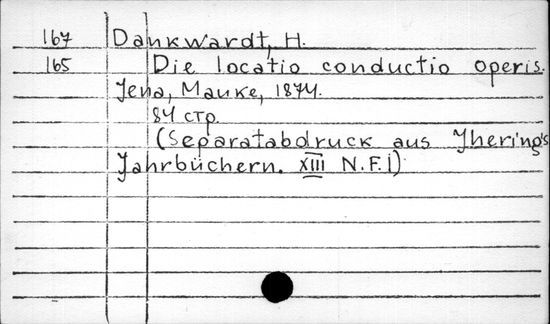 167 Dankwardt, H.
165 Die locatio conductio operis.
Jena, Mauke, 1874.
84 стр.
(Separatabdruck aus Jhering's
Jahrbüchern. XIII N.F.I)